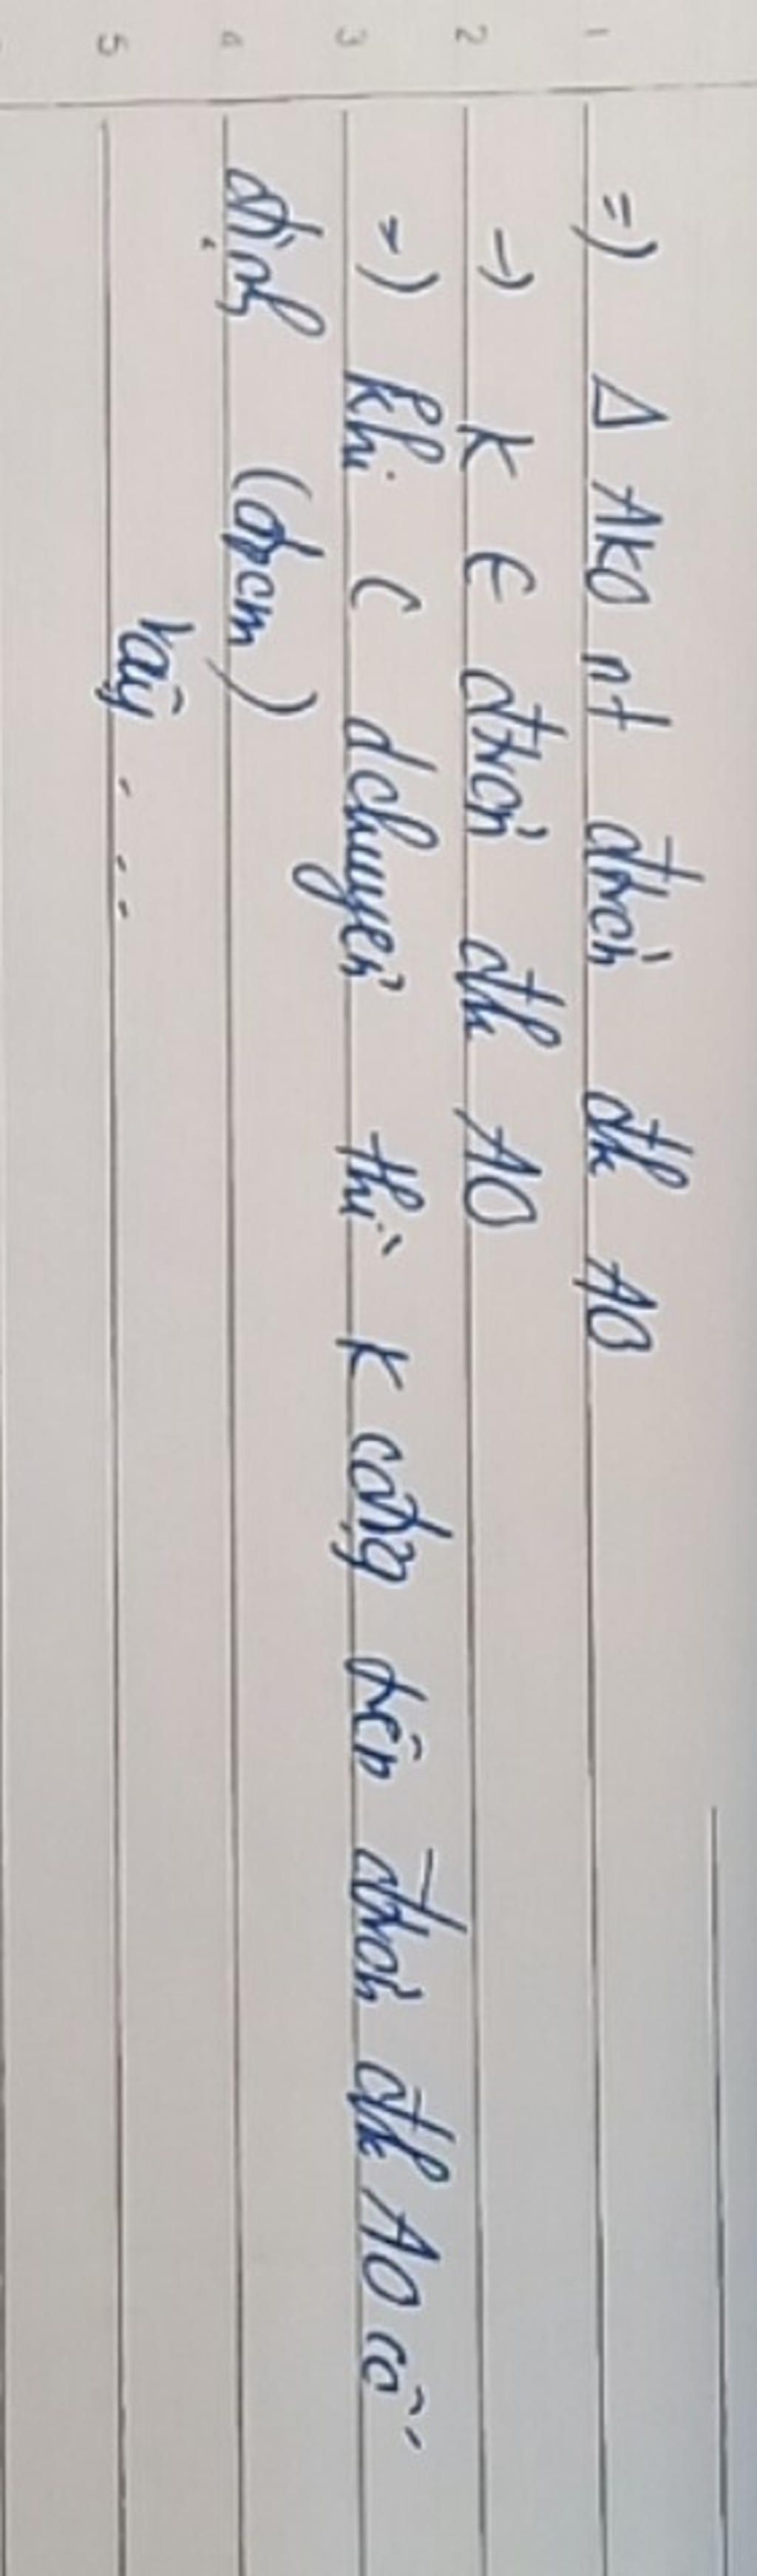 1 => Δ AKO nt đtròn đk AO
2 → K ∈ đtròn đk AO
3 => Khi C dchuyển thì K cđộng trên đtròn đk AO cố
4 định (đpcm)
5 Vậy . . .